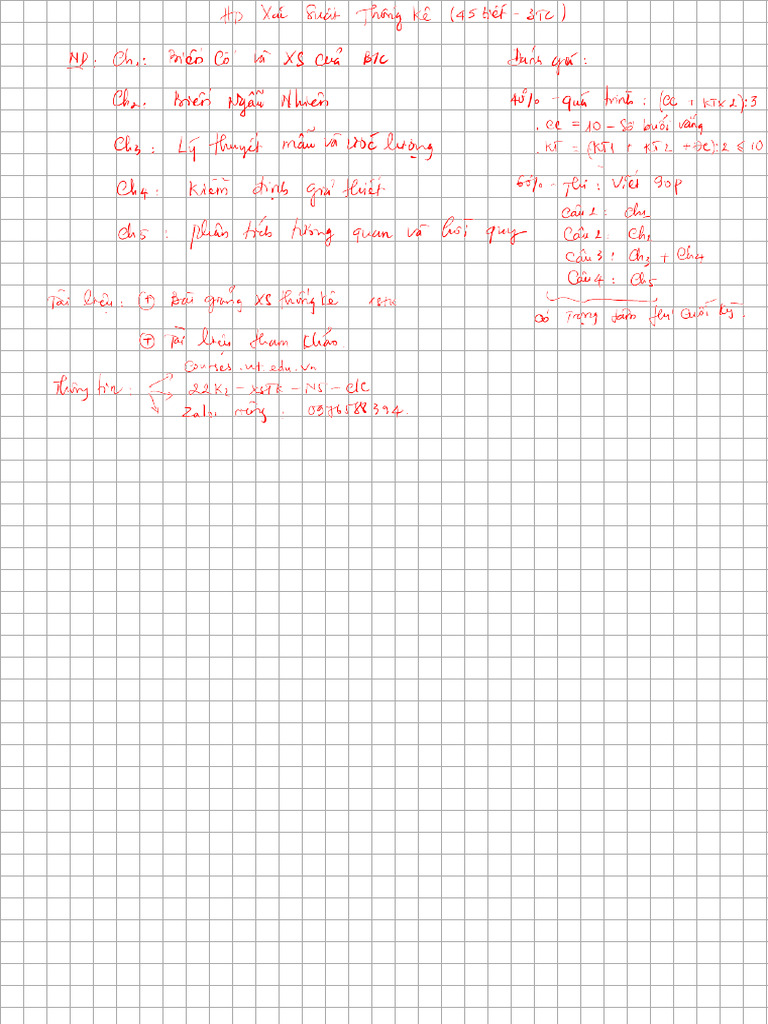 HP Xác Suất Thống Kê (45 tiết - 3TC)
ND: Ch1: Biến Cố và XS của BC
Ch2. Biến Ngẫu Nhiên
Ch3: Lý thuyết mẫu và ước lượng
Ch4: Kiểm định giả thiết
Ch5: phân tích tương quan và hồi quy
Tài liệu: + Bài giảng XS thống kê
+ Tài liệu tham khảo
Thông tin: courses.ut.edu.vn
22K2 - XSTK - N5 - CLC
Zalo riêng: 0976588394.
Đánh giá:
40% - quá trình: (CC + KT x 2):3
. CC = 10 - Số buổi vắng
. KT = (KT1 + KT2 + DC):2 ≤ 10
60% - Thi: Viết 90p
Câu 1: Ch1
Câu 2: Ch2
Câu 3: Ch3 + Ch4
Câu 4: Ch5
Có trọng tâm thi cuối kỳ.